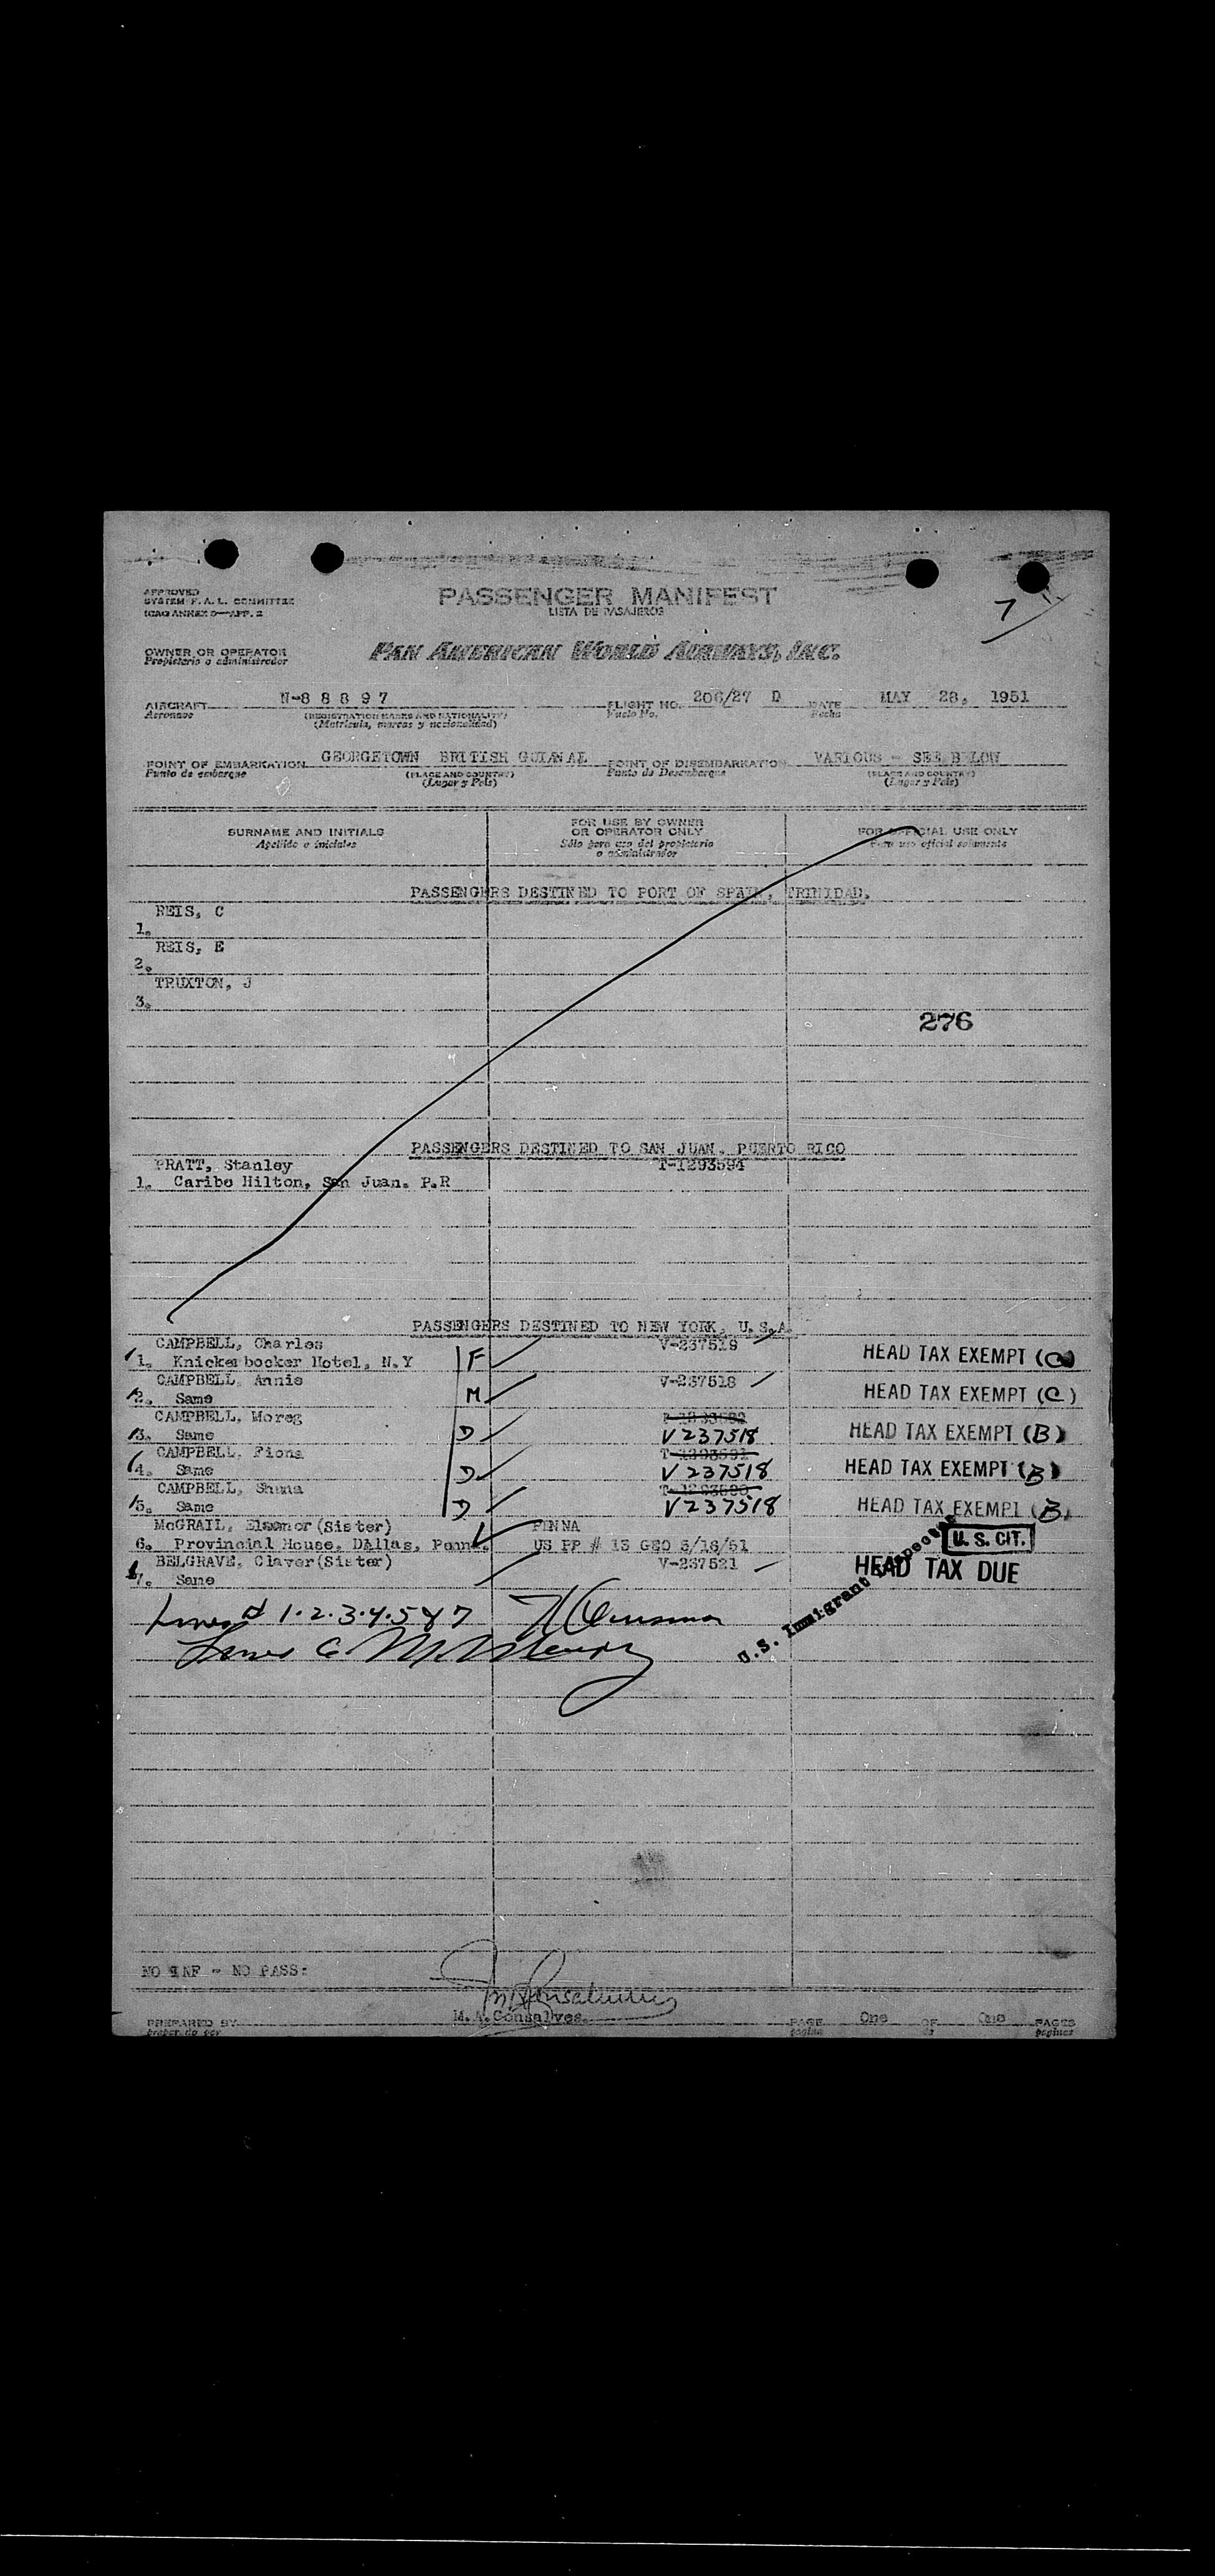 APPROVED
SYSTEM F.A.L. COMMITTEE
ICAO ANNEX 9—APP. 2
PASSENGER MANIFEST
LISTA DE PASAJEROS
7
OWNER OR OPERATOR
Propietario o administrador
PAN AMERICAN WORLD AIRWAYS, INC.
AIRCRAFT N-8 8 8 9 7 FLIGHT NO. 206/27 D DATE MAY 28, 1951
Aeronave (REGISTRATION MARKS AND NATIONALITY) Vuelo No. Fecha
(Matricula, marcas y nacionalidad)
POINT OF EMBARKATION GEORGETOWN BRITISH GUIANA POINT OF DISEMBARKATION VARIOUS - SEE BELOW
Punto de embarque (PLACE AND COUNTRY) Punto de Desembarque (PLACE AND COUNTRY)
(Lugar y Pais) (Lugar y Pais)
SURNAME AND INITIALS FOR USE BY OWNER OR OPERATOR ONLY FOR OFFICIAL USE ONLY
Apellido e iniciales Sólo para uso del propietario o administrador Para uso oficial solamente
PASSENGERS DESTINED TO PORT OF SPAIN, TRINIDAD.
REIS, C
1.
REIS, E
2.
TRUXTON, J
3.
276
PASSENGERS DESTINED TO SAN JUAN. PUERTO RICO
PRATT, Stanley T-1293594
1. Caribe Hilton, San Juan. P.R
PASSENGERS DESTINED TO NEW YORK, U.S.A.
CAMPBELL, Charles V-237519
1. Knickerbocker Hotel, N.Y F HEAD TAX EXEMPT (C)
CAMPBELL, Annie V-237518
2. Same M HEAD TAX EXEMPT (C)
CAMPBELL, Moreg
3. Same D V237518 HEAD TAX EXEMPT (B)
CAMPBELL, Fiona
4. Same D V237518 HEAD TAX EXEMPT (B)
CAMPBELL, Shena
5. Same D V237518 HEAD TAX EXEMPT (B)
McGRAIL, Eleanor(Sister) PENNA
6. Provincial House, Dallas, Penna. US PP # 13 GEO 3/18/51 U. S. CIT.
BELGRAVE, Claver(Sister) V-237521 HEAD TAX DUE
7. Same
U.S. Immigrant Inspector
Lines # 1.2.3.4.5 & 7
NO INF - NO PASS:
M.A.Gonsalves.
PREPARED BY PAGE One OF One PAGES
pagina de paginas